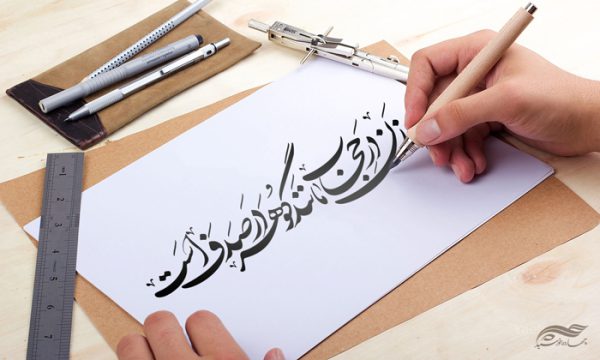 زن در حجاب مانند گوهر در صدف است
1
2
3
4
5
6
7